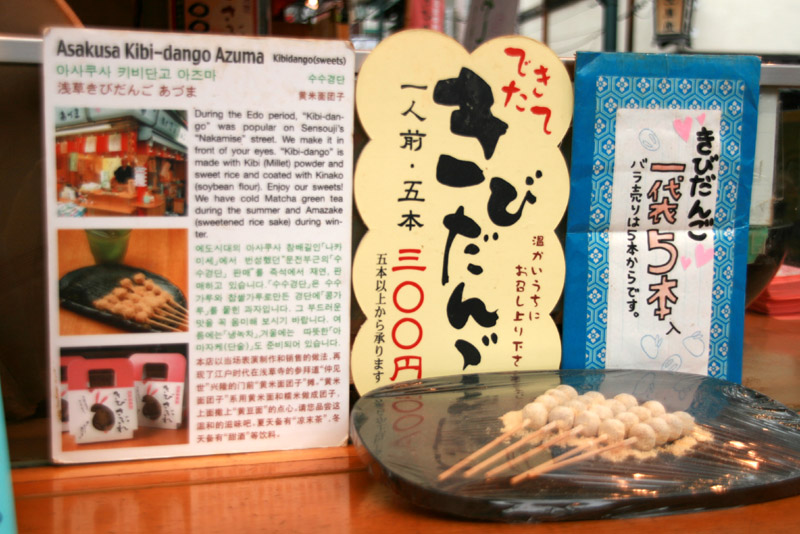 Asakusa Kibi-dango Azuma
Kibidango(sweets)
아사쿠사 키비단고 아즈마
수수경단
浅草きびだんご あづま
黄米面团子
During the Edo period, "Kibi-dan-
go" was popular on Sensouji's
"Nakamise" street. We make it in
front of your eyes. "Kibi-dango" is
made with Kibi (Millet) powder and
sweet rice and coated with Kinako
(soybean flour). Enjoy our sweets!
We have cold Matcha green tea
during the summer and Amazake
(sweetened rice sake) during win-
ter.
에도시대의 아사쿠사 참배길인「나카
미세」에서 번성했던"운전부근의「수
수경단」판매"를 즉석에서 재연, 판
매하고 있습니다.「수수경단」은 수수
가루와 찹쌀가루로만든 경단에「콩가
루」를 뿌린 과자입니다. 그 부드러운
맛을 꼭 음미해 보시기 바랍니다. 여
름에는「냉녹차」,겨울에는 따뜻한「아
마자케(단술)」도 준비되어 있습니다.
本店以当场表演制作和销售的做法,再
现了江户时代在浅草寺的参拜道"仲见
世"兴隆的门前"黄米面团子"摊。"黄米
面团子"系用黄米面和糯米做成团子,
上面撒上"黄豆面"的点心。请您品尝这
温和的滋味吧。夏天备有"凉末茶",冬
天备有"甜酒"等饮料。
できて
たて
きびだんご
一人前・五本
三〇〇円
五本以上から承ります
温かいうちに
お召し上り下さい
きびだんご
一袋5本入
バラ売りは5本からです。